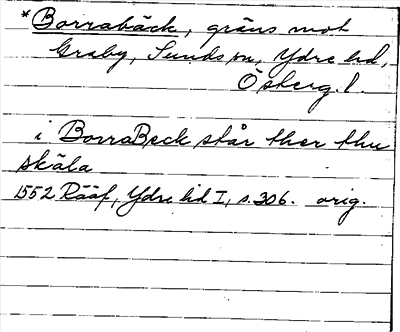 *Borrabäck, gräns mot
Graby, Sunds sn, Ydre hd,
Österg. l.
i BorraBeck står ther thu
skäla
1552 Rääf, Ydre hd I, s. 306. orig.